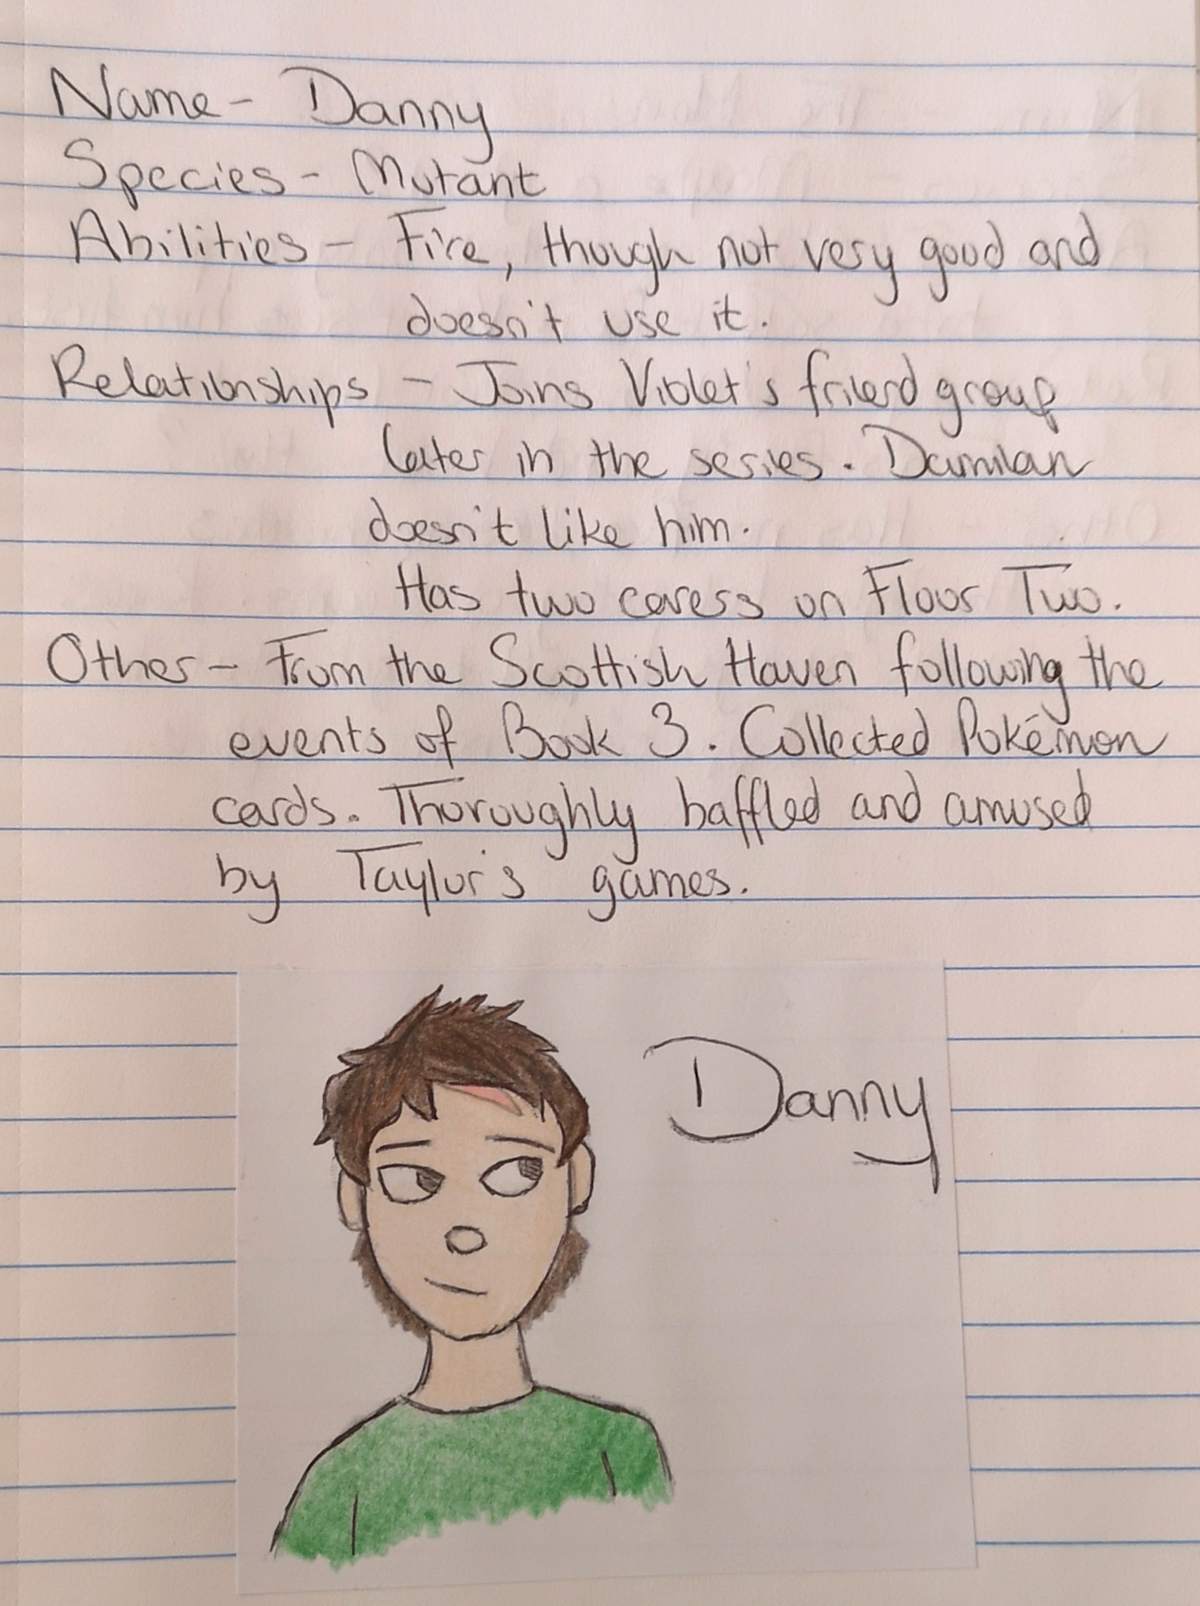 Name - Danny
Species - Mutant
Abilities - Fire, though not very good and
doesn't use it.
Relationships - Joins Violet's friend group
later in the series. Damian
doesn't like him.
Has two carers on Floor Two.
Other - From the Scottish Haven following the
events of Book 3. Collected Pokémon
cards. Thoroughly baffled and amused
by Taylor's games.
Danny